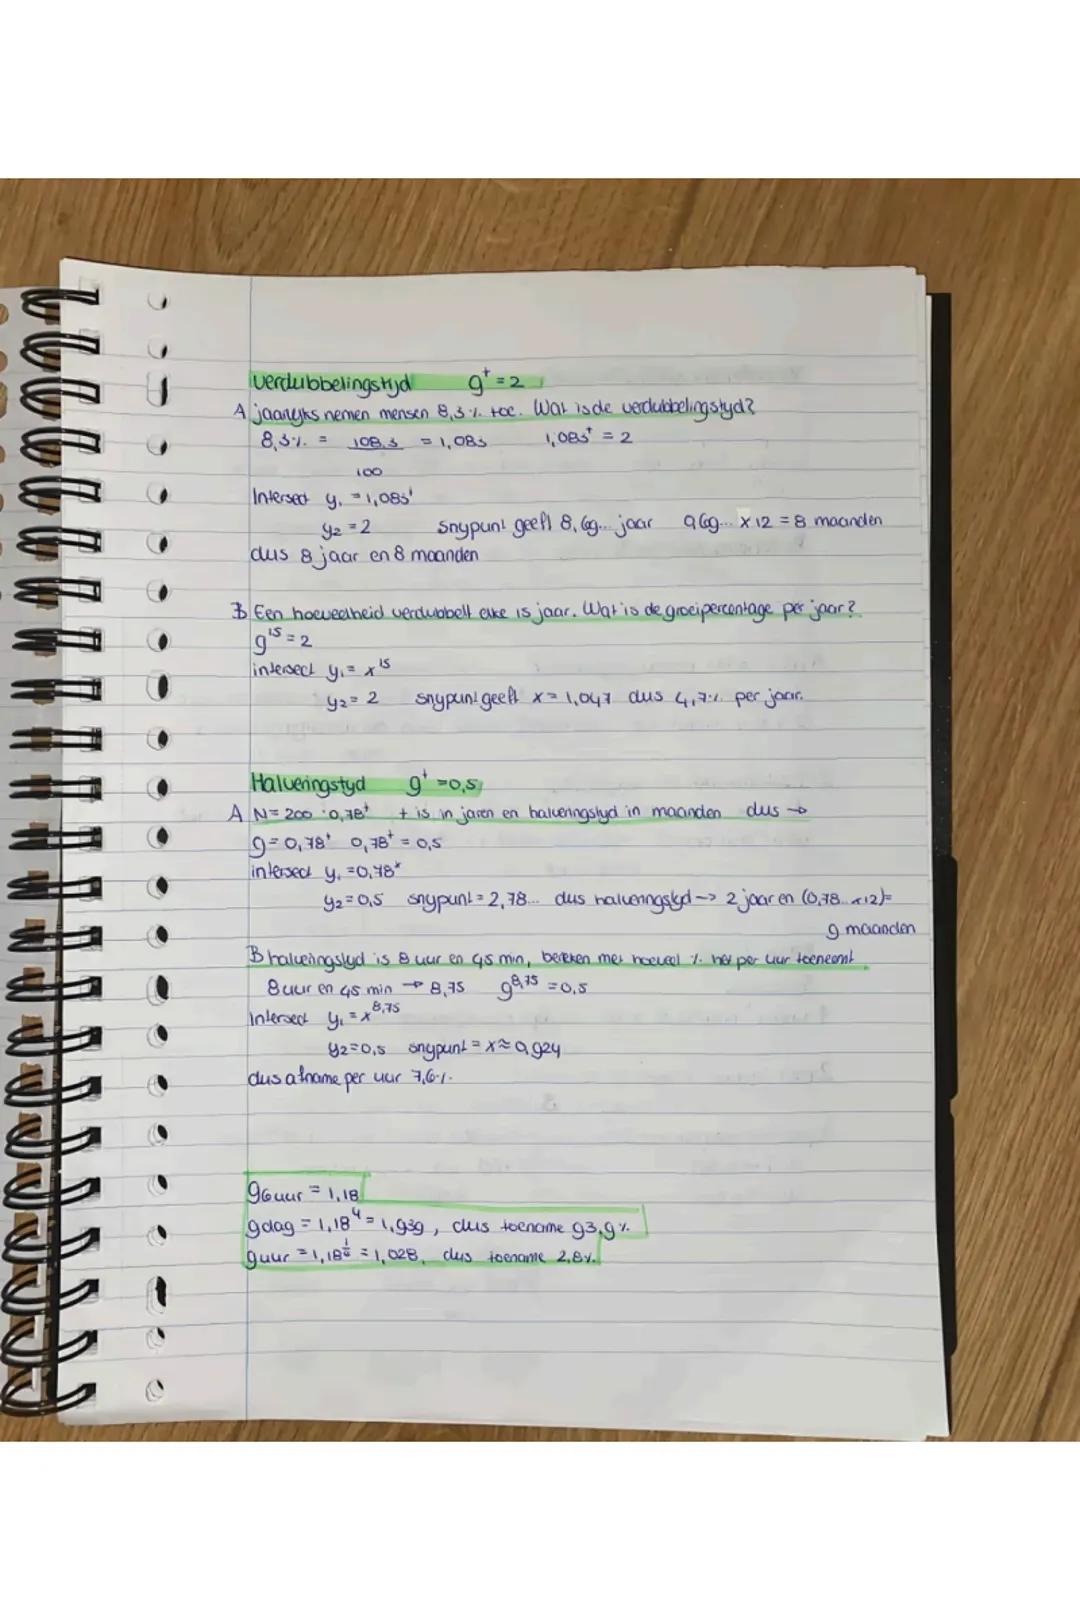 verdubbelingstijd g^t = 2
A jaarlijks nemen mensen 8,3% toe. Wat is de verdubbelingstijd?
8,3% = 108,3 = 1,083 1,083^t = 2
100
Intersect y₁ = 1,083^t
y₂ = 2 snijpunt geeft 8,69... jaar 0,69... x 12 = 8 maanden
dus 8 jaar en 8 maanden
B Een hoeveelheid verdubbelt elke 15 jaar. Wat is de groeipercentage per jaar?
g^15 = 2
intersect y₁ = x^15
y₂ = 2 snijpunt geeft x = 1,047 dus 4,7% per jaar.
Halveringstijd g^t = 0,5
A N = 200 · 0,78^t t is in jaren en halveringstijd in maanden dus →
g = 0,78^t 0,78^t = 0,5
intersect y₁ = 0,78^x
y₂ = 0,5 snijpunt = 2,78... dus halveringstijd → 2 jaar en (0,78... x 12) =
9 maanden
B halveringstijd is 8 uur en 45 min, bereken met hoeveel % het per uur toeneemt
8 uur en 45 min → 8,75 g^8,75 = 0,5
Intersect y₁ = x^8,75
y₂ = 0,5 snijpunt = x ≈ 0,924
dus afname per uur 7,6%.
g6uur = 1,18
gdag = 1,18^4 = 1,939, dus toename 93,9%.
guur = 1,18^1/6 = 1,028, dus toename 2,8%.